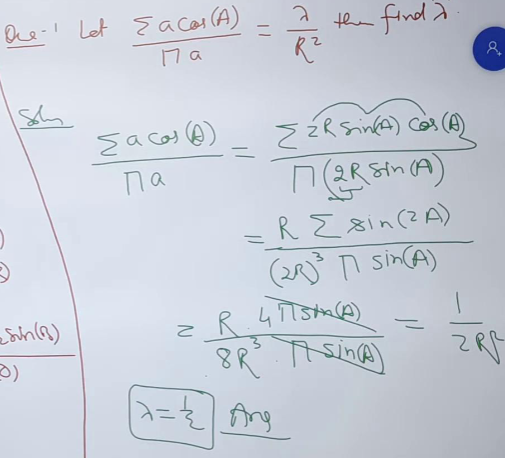 Que-1 Let ∑ a cos(A) / ∏ a = λ / R² then find λ.
Soln
∑ a cos(A) / ∏ a = ∑ 2R sin(A) cos(A) / ∏ (2R sin(A))
= R ∑ sin(2A) / (2R)³ ∏ sin(A)
= R · 4 ∏ sin(A) / 8R³ · ∏ sin(A) = 1 / 2R²
λ = 1/2 Ans
sin(B)